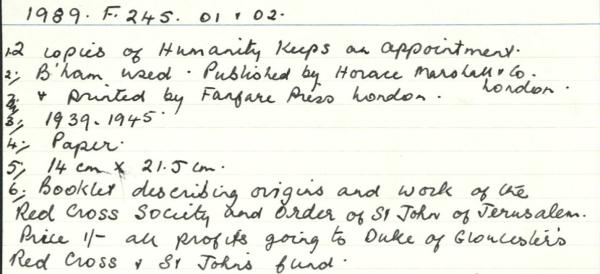 1989. F. 245. 01 & 02.
1. 2 copies of Humanity Keeps an appointment.
2; B'ham used. Published by Horace Marshall & Co. London.
& printed by Fanfare Press London.
3; 1939-1945.
4; Paper.
5; 14 cm x 21.5 cm.
6; Booklet describing origins and work of the
Red Cross Society and Order of St John of Jerusalem.
Price 1/- all profits going to Duke of Gloucester's
Red Cross & St John's fund.